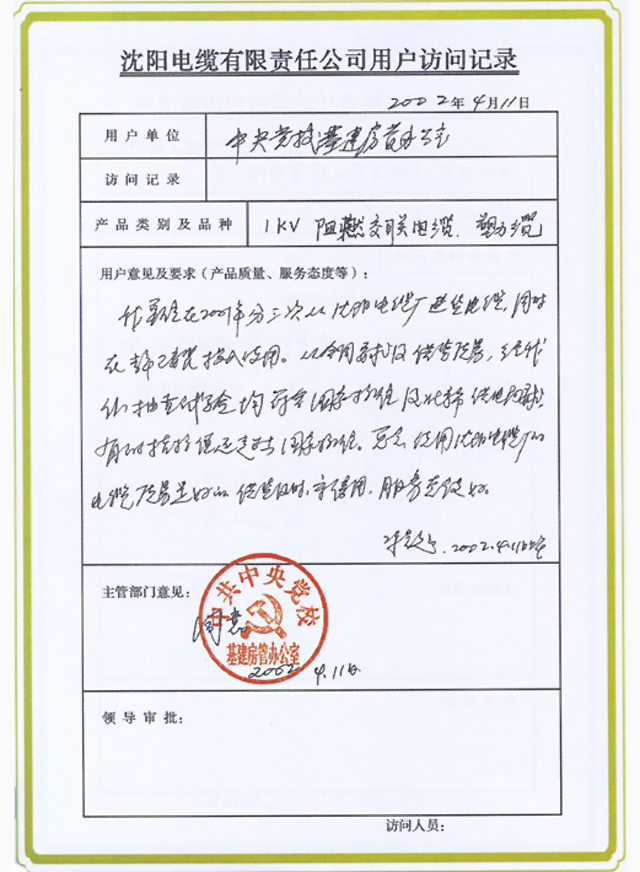 沈阳电缆有限责任公司用户访问记录
2002年4月11日
用户单位 中央党校基建房管办公室
访问记录
产品类别及品种 1KV 阻燃交联电缆、塑力缆
用户意见及要求（产品质量、服务态度等）：
在2001年分三次从沈阳电缆厂进货电缆，同时
在 投入使用。从合同 供货质量，经
抽查试验均符合国家标准及北京市供电
有的指标还超出国家标准。总之，使用沈阳电缆厂的
电缆质量是好的，供货及时，守信用，服务态度好。
2002.4.11日
主管部门意见：
同意
中共中央党校
基建房管办公室
2002 4.11日
领导审批：
访问人员：